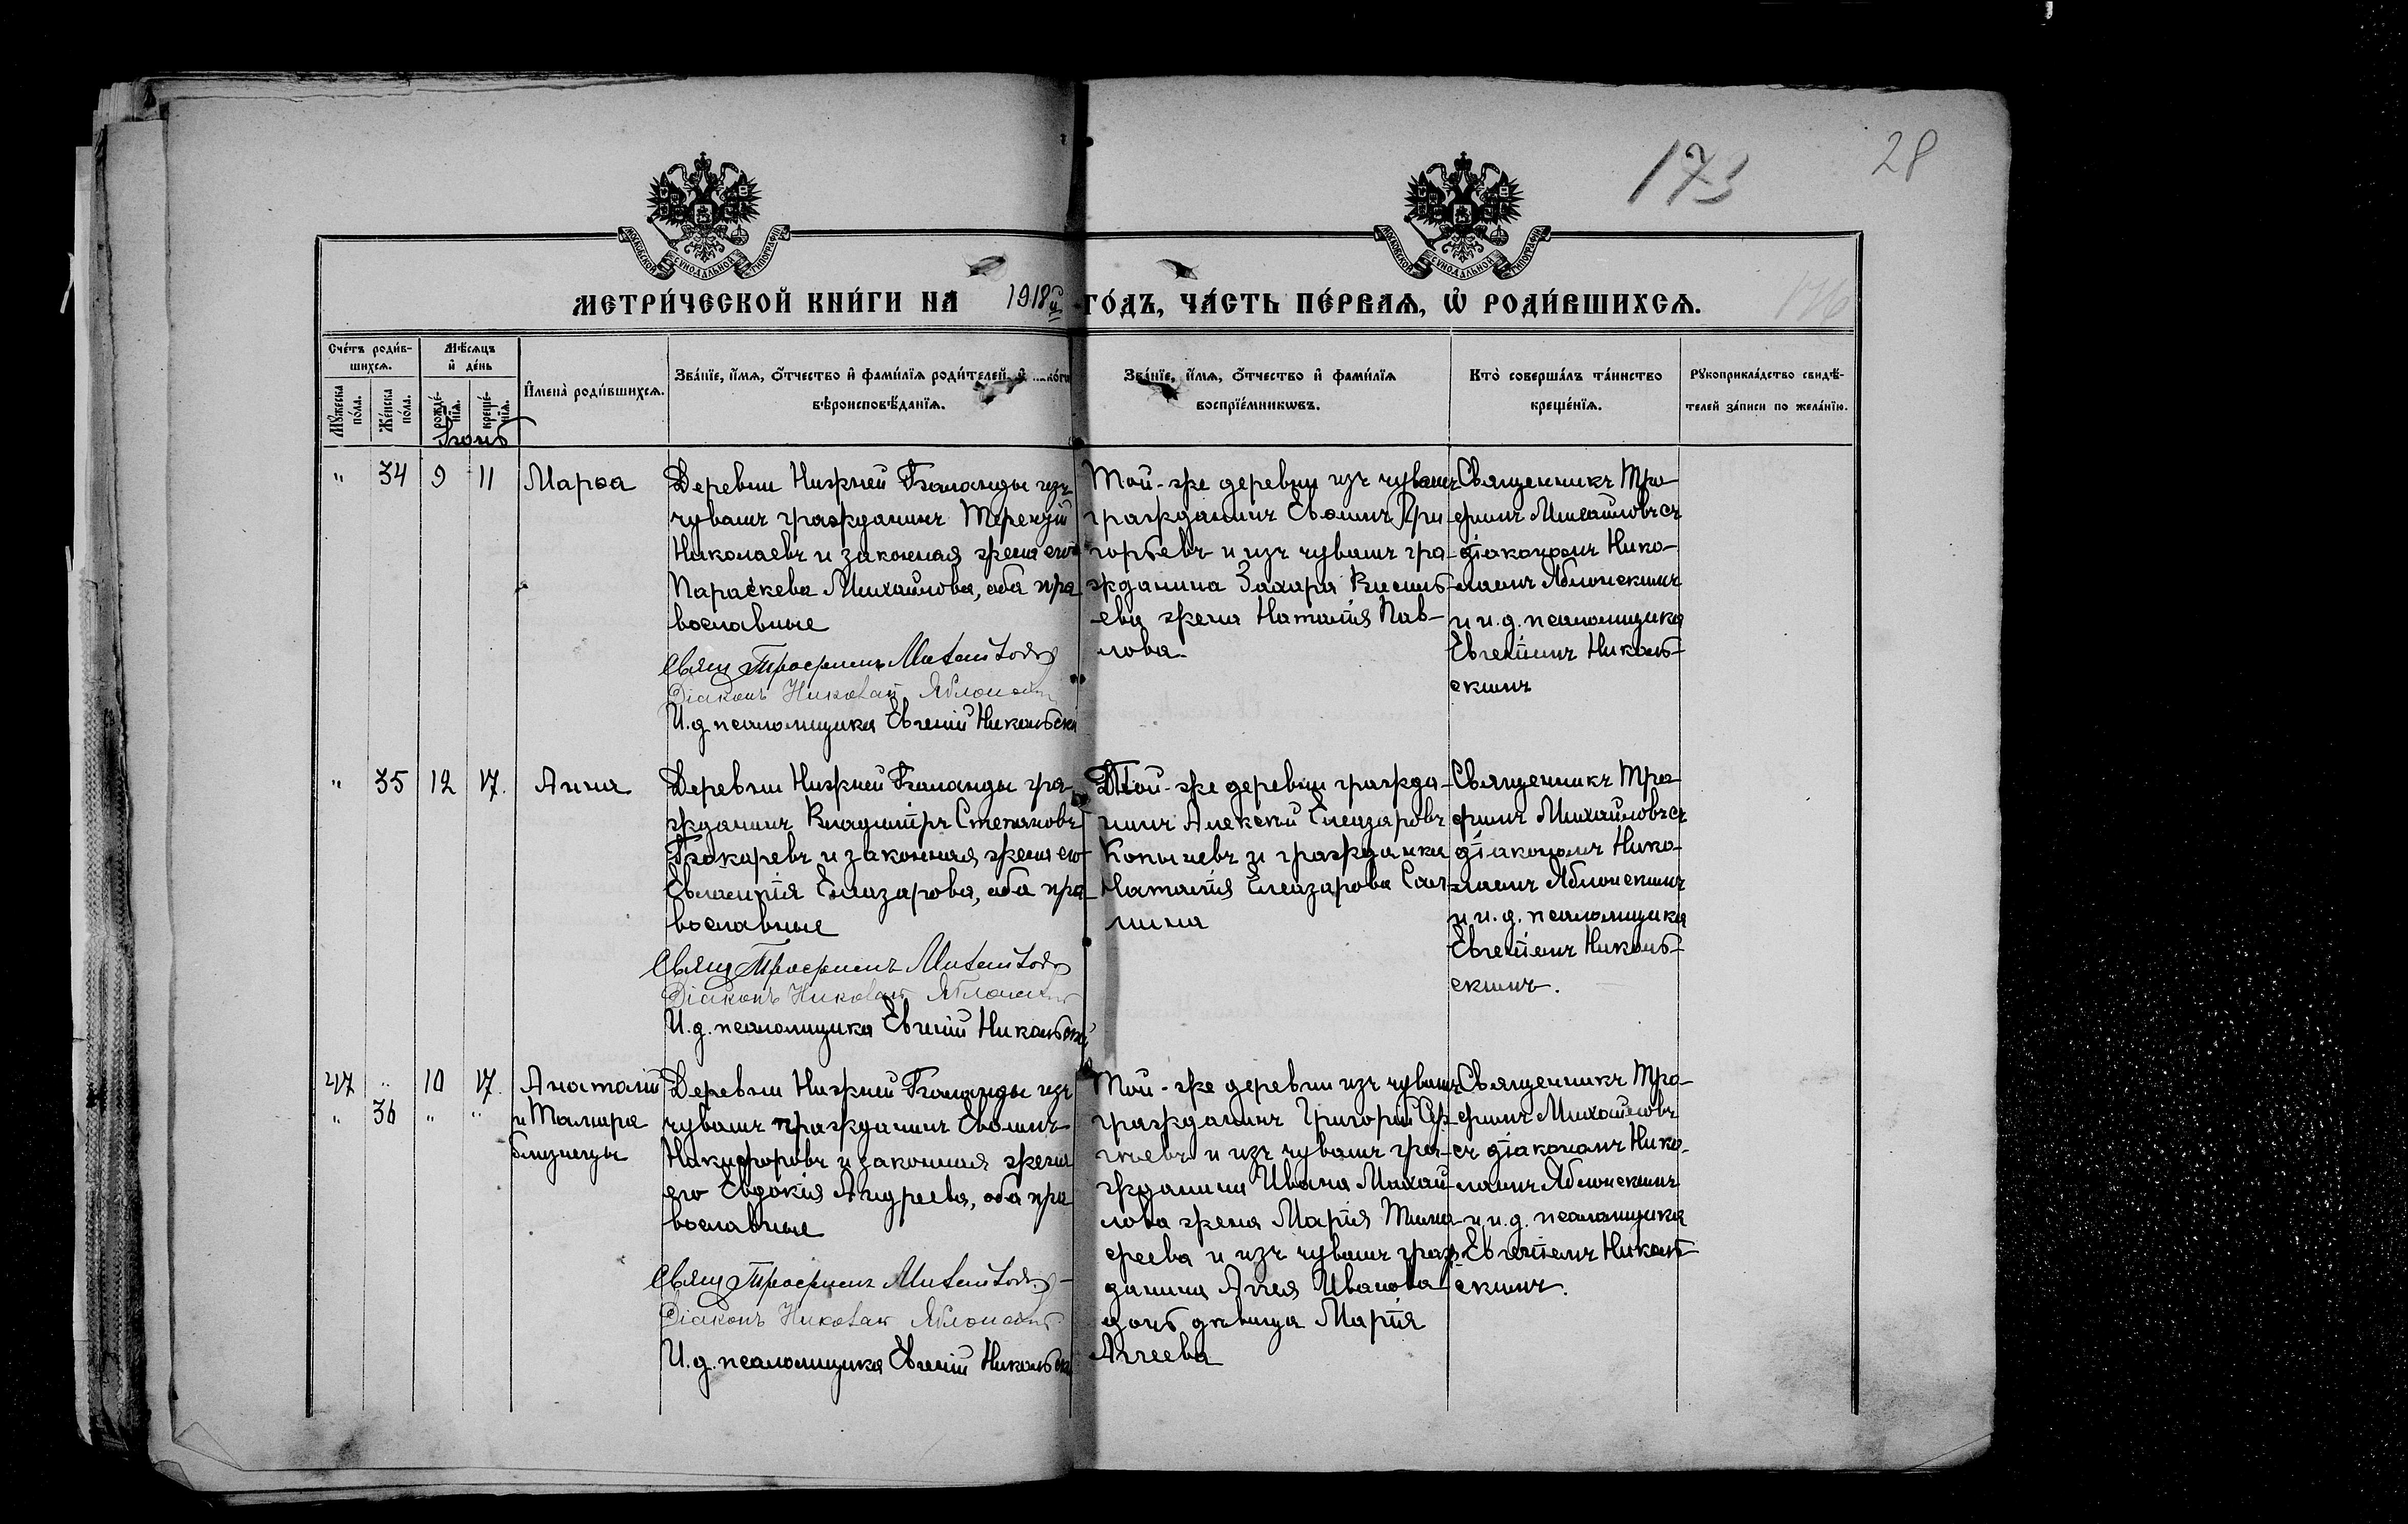 173
28
176
МОСКОВСКОЙ СѴНОДАЛЬНОЙ ТИПОГРАФІИ
МОСКОВСКОЙ СѴНОДАЛЬНОЙ ТИПОГРАФІИ
МЕТРИ́ЧЕСКОЙ КНИ́ГИ НА 1918й ГО́ДЪ, ЧА́СТЬ ПЕ́РВАѦ, Ѡ҆ РОДИ́ВШИХСѦ.
Сче́тъ роди́в-
шихсѧ.
Мꙋ́жеска по́ла.
Же́нска по́ла.
Мѣ́сѧцъ
и҆ де́нь
рожде́-
нїѧ.
креще́-
нїѧ.
И҆мена̀ роди́вшихсѧ.
Зва́нїе, и҆́мѧ, ѻ҆́тчество и҆ фами́лїѧ роди́телей, и҆
вѣроисповѣ́данїѧ.
Зва́нїе, и҆́мѧ, ѻ҆́тчество и҆ фами́лїѧ
воспрїе́мникωвъ.
Кто̀ соверша́лъ та́инство
креще́нїѧ.
Рꙋкоприкла́дство свидѣ́-
телей за́писи по жела́нїю.
Іюнь
" 34 9 11 Марѳа
Деревни Нижней Баланды изъ
чувашъ гражданинъ Терентій
Николаевъ и законная жена его
Параскева Михайлова, оба пра
вославные
Свящ Трофимъ Михайловъ
Діаконъ Николай Яблонскій
И.д. псаломщика Евгеній Никольскій
Той-же деревни изъ чувашъ
гражданинъ Евѳимъ Гри
горьевъ и изъ чувашъ гра-
жданина Захара Василь
ева жена Наталія Пав-
лова
Священникъ Тро
фимъ Михайловъ съ
діакономъ Нико-
лаемъ Яблонскимъ
и и.д. псаломщика
Евгеніемъ Николь-
скимъ
" 35 12 17. Анна
Деревни Нижней Баланды гра-
жданинъ Владиміръ Степановъ
и законная жена его
Евлампія Елеазарова, оба пра
вославные
Свящ Трофимъ Михайловъ
Діаконъ Николай Яблонскій
И.д. псаломщика Евгеній Никольскій
Той-же деревни гражда-
нинъ Алексій Елеазаровъ
и гражданка
Наталія Елеазарова
Священникъ Тро
фимъ Михайловъ съ
діакономъ Нико-
лаемъ Яблонскимъ
и и.д. псаломщика
Евгеніемъ Николь-
скимъ.
" 10 17. Анатолій
" 36 " " и Тамара
близнецы
Деревни Нижней Баланды изъ
чувашъ гражданинъ Евѳимъ
Никифоровъ и законная жена
его Евдокія Андреева, оба пра
вославные
Свящ Трофимъ Михайловъ
Діаконъ Николай Яблонскій
И.д. псаломщика Евгеній Никольскій
Той-же деревни изъ чувашъ
гражданинъ Григорій Сер-
гіевъ и изъ чувашъ гра-
жданина Ивана Михай
лова жена Марія Тимо
феева и изъ чувашъ граж
данина Аггея Иванова
дочь дѣвица Марія
Аггеева
Священникъ Тро-
фимъ Михайловъ
съ діакономъ Нико-
лаемъ Яблонскимъ
и и.д. псаломщика
Евгеніемъ Николь
скимъ.